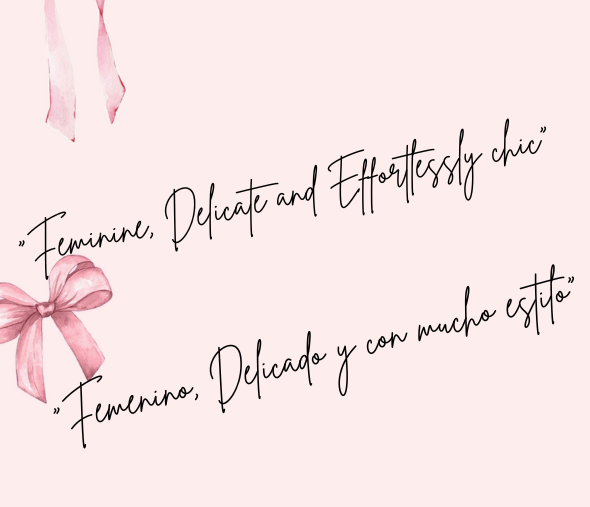 "Feminine, Delicate and Effortlessly chic"
"Femenino, Delicado y con mucho estilo"